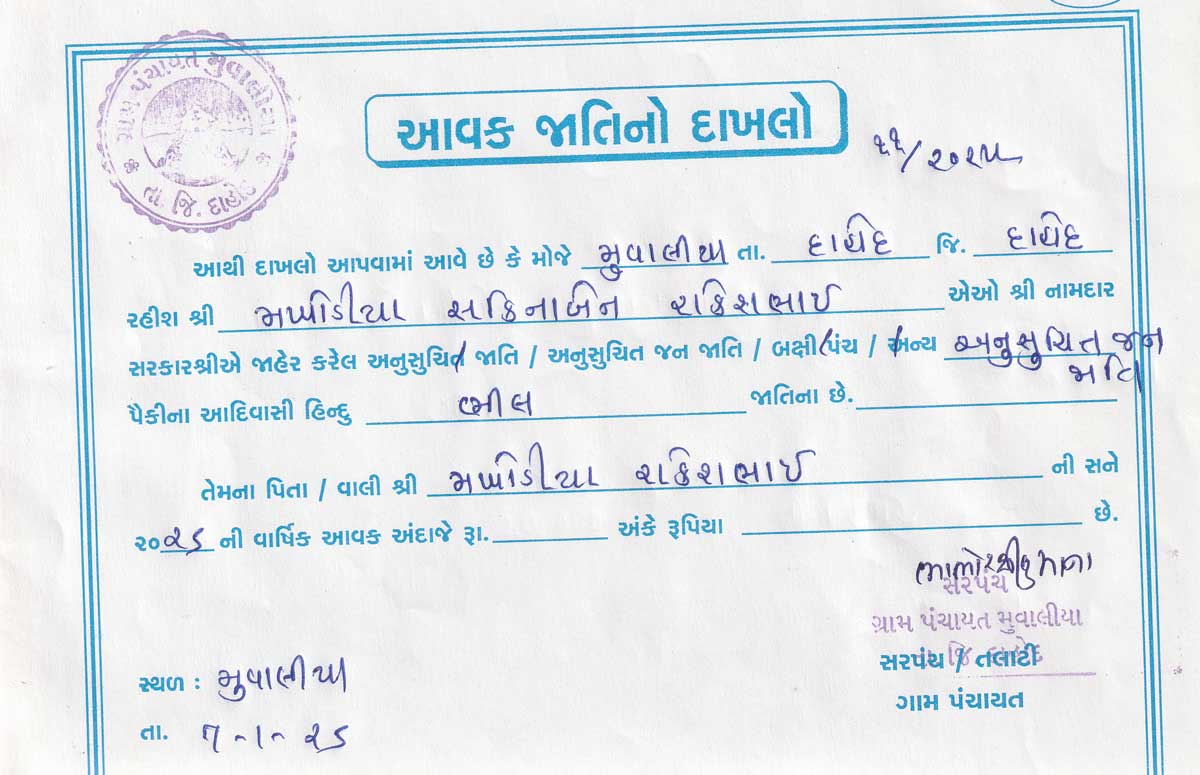 ગ્રામ પંચાયત મુવાલીયા
તા. જિ. દાહોદ
આવક જાતિનો દાખલો
૨૨/૨૦૨૫
આથી દાખલો આપવામાં આવે છે કે મોજે મુવાલીયા તા. દાહોદ જિ. દાહોદ
રહીશ શ્રી મખોડીયા સકિનાબેન રાકેશભાઈ એઓ શ્રી નામદાર
સરકારશ્રીએ જાહેર કરેલ અનુસુચિત જાતિ / અનુસુચિત જન જાતિ / બક્ષીપંચ / અન્ય અનુસુચિત જન
જાતિ
પૈકીના આદિવાસી હિન્દુ ભીલ જાતિના છે.
તેમના પિતા / વાલી શ્રી મખોડીયા રાકેશભાઈ ની સને
૨૦૨૬ ની વાર્ષિક આવક અંદાજે રૂા. અંકે રૂપિયા છે.
સરપંચ
ગ્રામ પંચાયત મુવાલીયા
સરપંચ / તલાટી
ગામ પંચાયત
સ્થળ : મુવાલીયા
તા. ૭-૧-૨૬